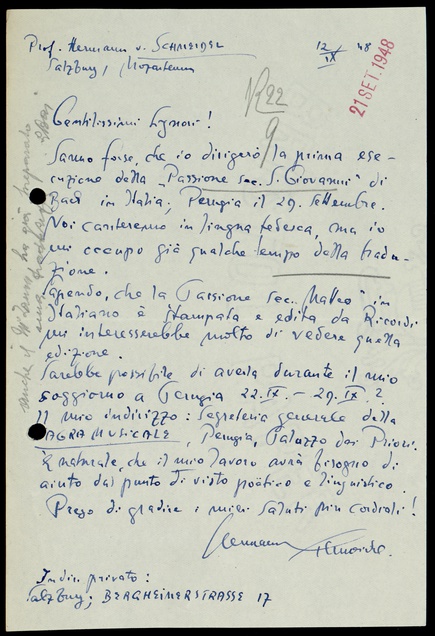 Prof. Hermann v. SCHMEIDEL
Salzburg, Mozarteum
12/IX 48
21 SET. 1948
R22
9
Gentilissimi Signori!
Sanno forse, che io dirigerò la prima ese-
cuzione della "Passione sec. S. Giovanni" di
Bach in Italia, Perugia il 29. settembre.
Noi canteremo in lingua tedesca, ma io
mi occupo già qualche tempo della tradu-
zione.
Sapendo, che la "Passione sec. Matteo" in
Italiano è stampata e edita da Ricordi
mi interesserebbe molto di vedere quella
edizione.
Sarebbe possibile di averla durante il mio
soggiorno a Perugia 22.IX. – 29.IX.?
Il mio indirizzo: Segreteria generale della
SAGRA MUSICALE, Perugia, Palazzo dei Priori.
È naturale, che il mio lavoro avrà bisogno di
aiuto dal punto di visto poëtico e linguistico.
Prego di gradire i miei saluti più cordiali!
Hermann Schmeidel.
Indir. privato:
Salzburg; BERGHEIMERSTRASSE 17
anche il ha già preparato
una